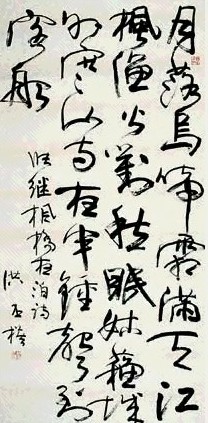 月落烏啼霜滿天江
楓漁火對愁眠姑蘇城
外寒山寺夜半鐘聲到
客船
張繼楓橋夜泊詩
洪丕